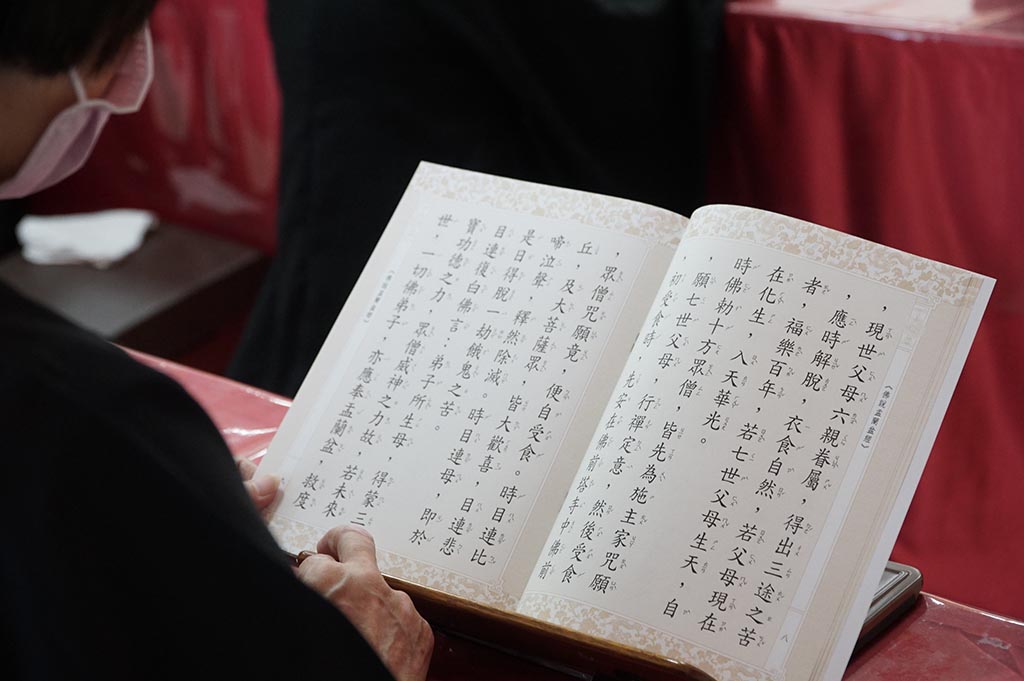 《佛說盂蘭盆經》
，現世父母六親眷屬，得出三途之苦
者，應時解脫，衣食自然，若父母現在
者，福樂百年，若七世父母生天，自
在化生，入天華光。
時佛勅十方眾僧，皆先為施主家咒願
，願七世父母，行禪定意，然後受食
初受食時，先安在佛前塔寺中佛前
八
，眾僧咒願竟，便自受食。時目連比
丘，及大菩薩眾，皆大歡喜，目連悲
啼泣聲，釋然除滅。時目連母，即於
是日得脫一劫餓鬼之苦。
目連復白佛言：弟子所生母，得蒙三
寶功德之力，眾僧威神之力故，若未來
世，一切佛弟子，亦應奉盂蘭盆，救度
《佛說盂蘭盆經》